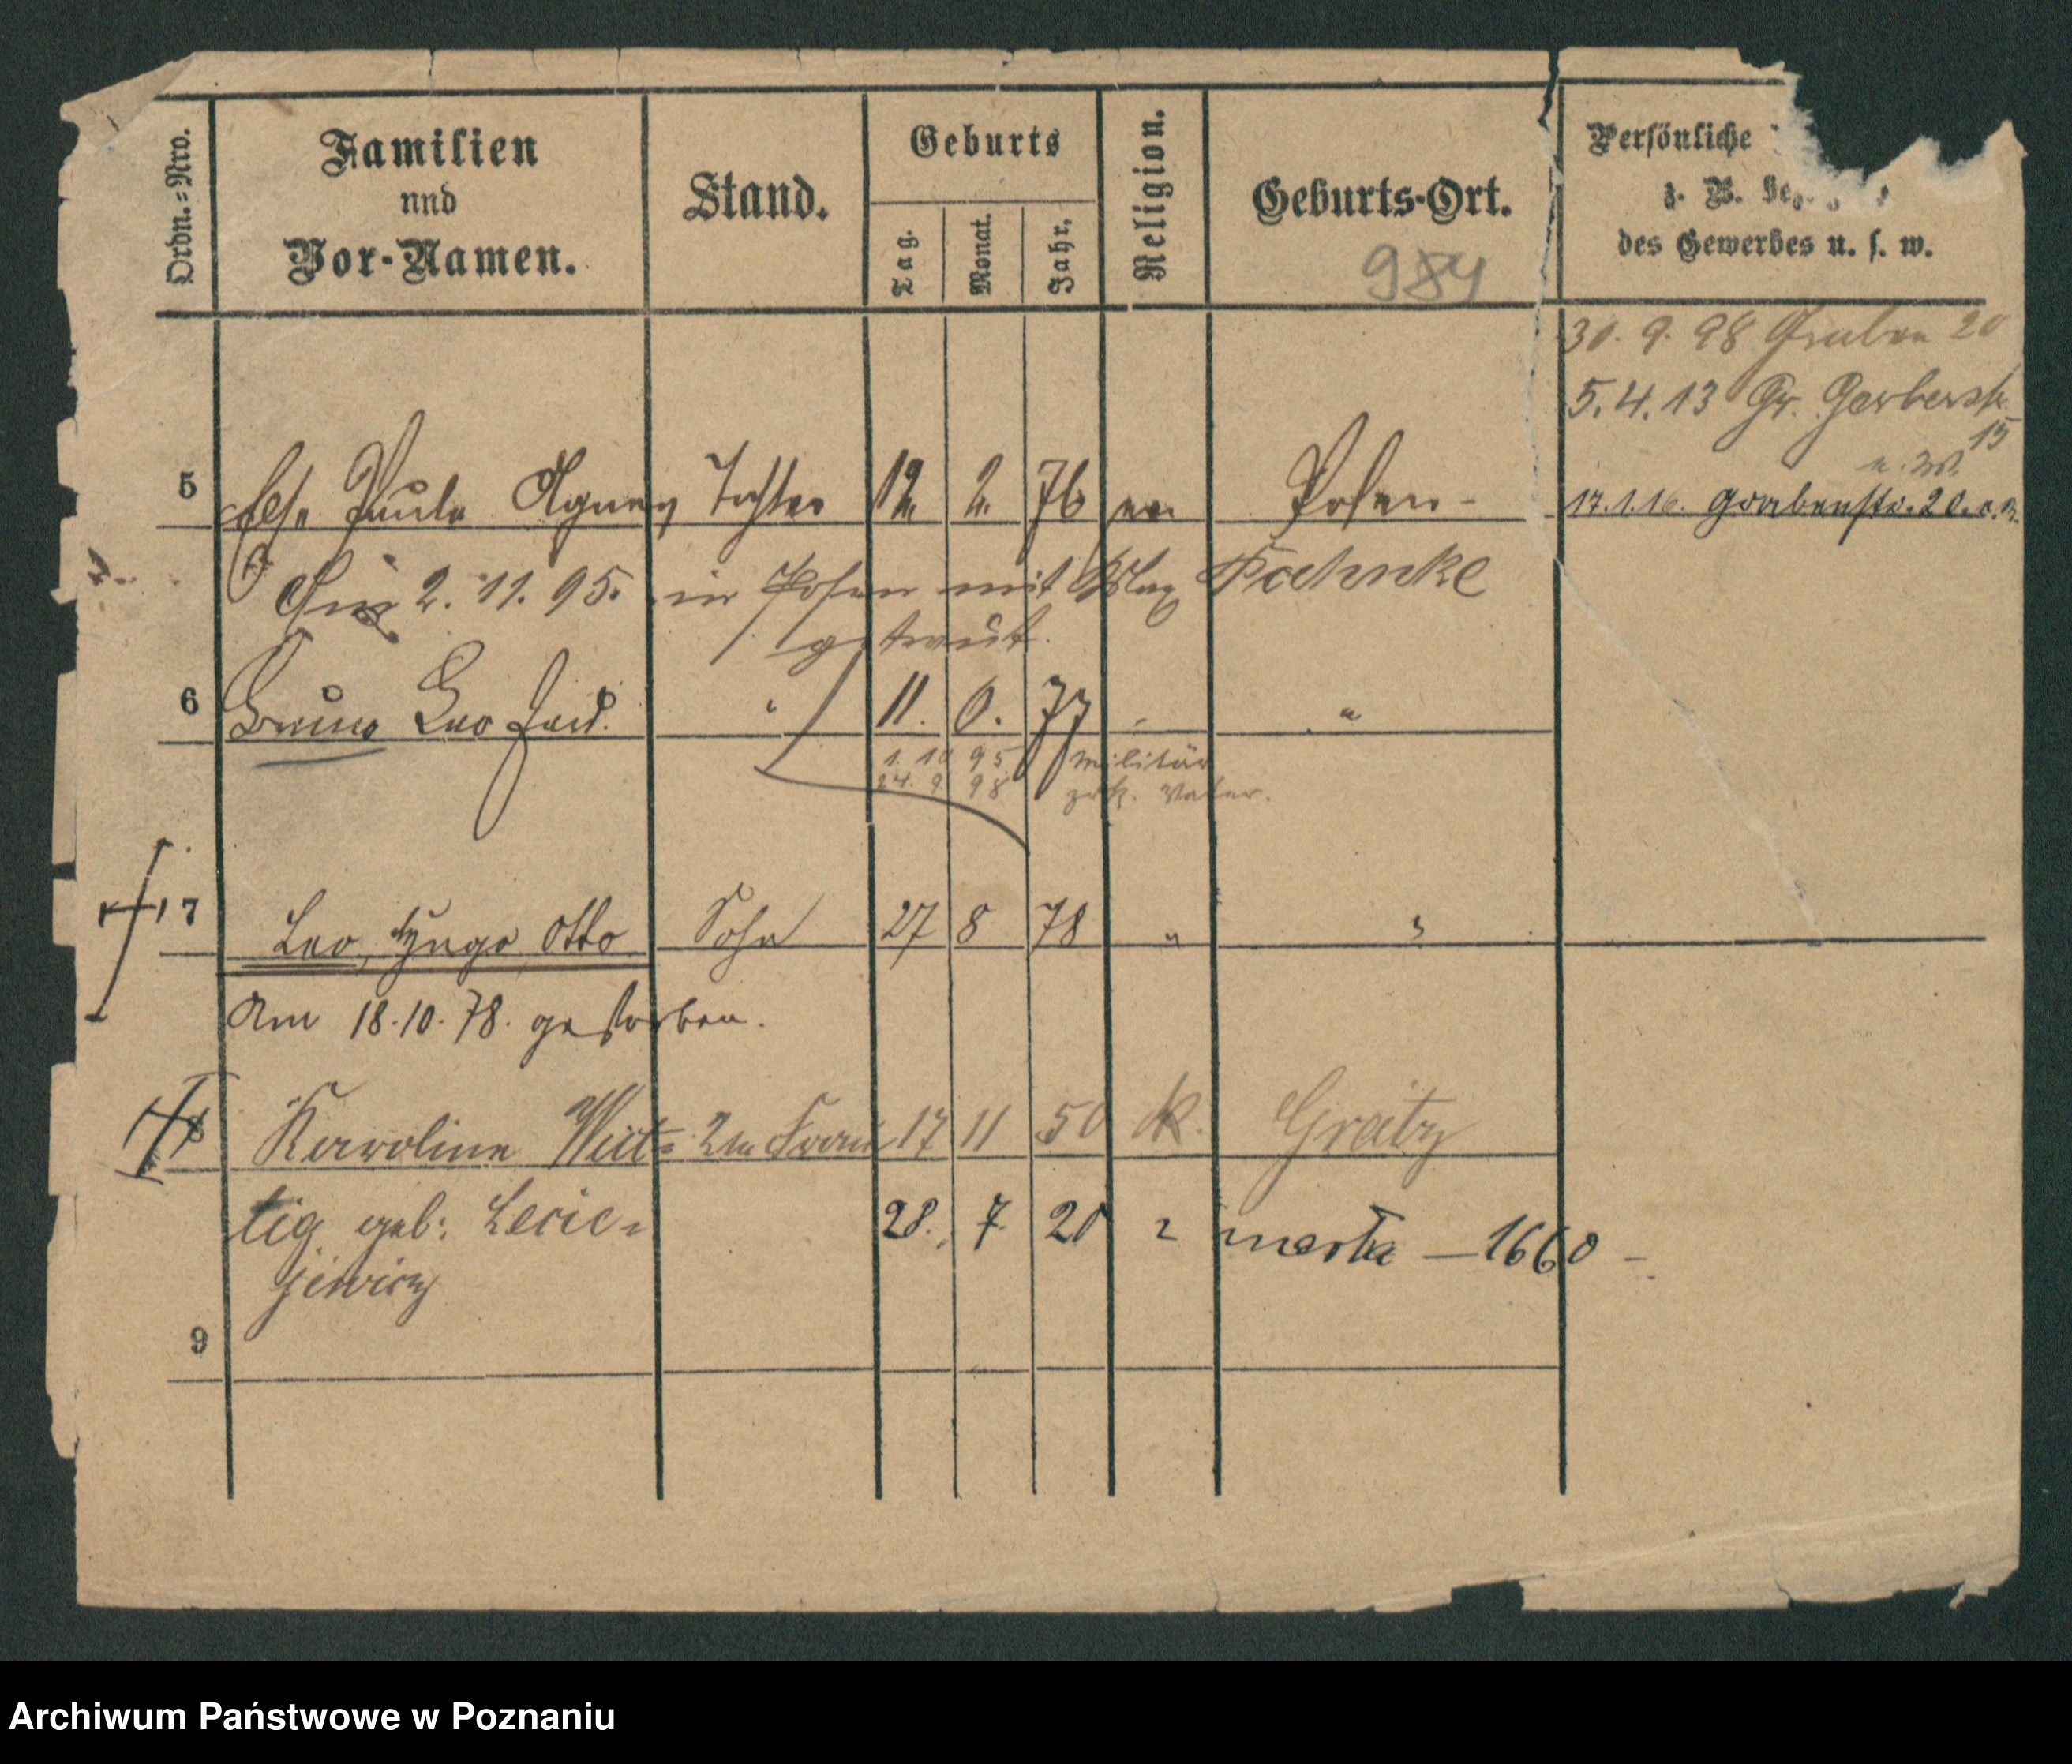 Ordn.=Nro.
Familien
und
Vor-Namen.
Stand.
Geburts
Tag.
Monat.
Jahr.
Religion.
Geburts-Ort.
984
Persönliche
z. B.
des Gewerbes u. s. w.
30. 9. 98 Graben 20
5. 4. 13 Gr. Gerberstr.
15
5 Else Paula Agnes Tochter 12. 2. 76 ev. Posen -
17.1.16. Grabenstr. 20.
Am 2. 11. 95. in Posen mit Max Fahnke
getraut.
6 Bruno Leo Ferd. " 11. 6. 77 " "
1. 10 95 Militär
24. 9 98 zrk. Vater.
7 Leo, Hugo, Otto Sohn 27 8 78 " "
Am 18.10.78. gestorben.
8 Karoline Wit= 2te Frau 17 11 50 k. Grätz
tig geb: Lecie=
jewicz
28. 7. 20 marta — 1660 -
9
Archiwum Państwowe w Poznaniu